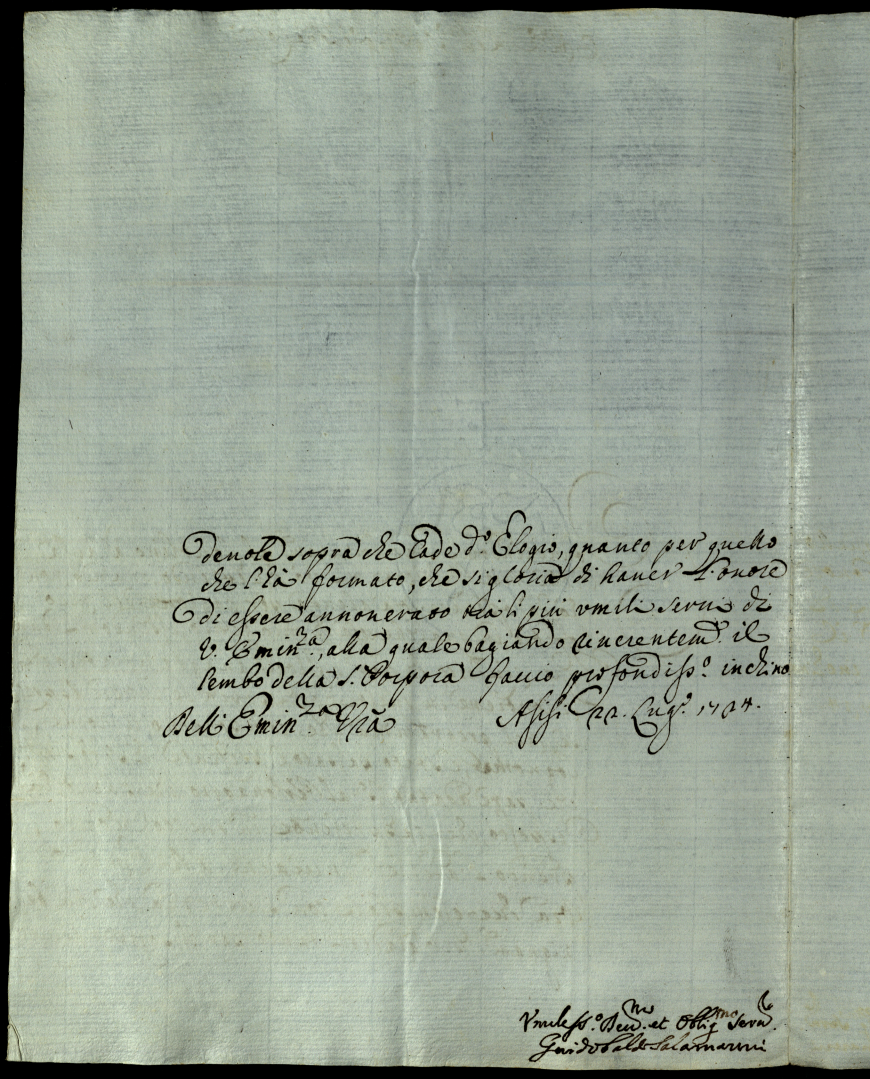 denote sopra che cade d.º Elogio, quanto per quello
che l'hà formato, che si gloria di hauer l'onore
di essere annonerato trà li più vmili serui di
V. Emin.za, alla quale bagiando riuerentem.e il
lembo della S. Porpora faccio profondiss.º inchino
Dell'Emin.za Vrã Asisi 22. Lug.º 1724.
Vmiless.º Deu.mo et Oblig.mo Seru.
Guidobaldo